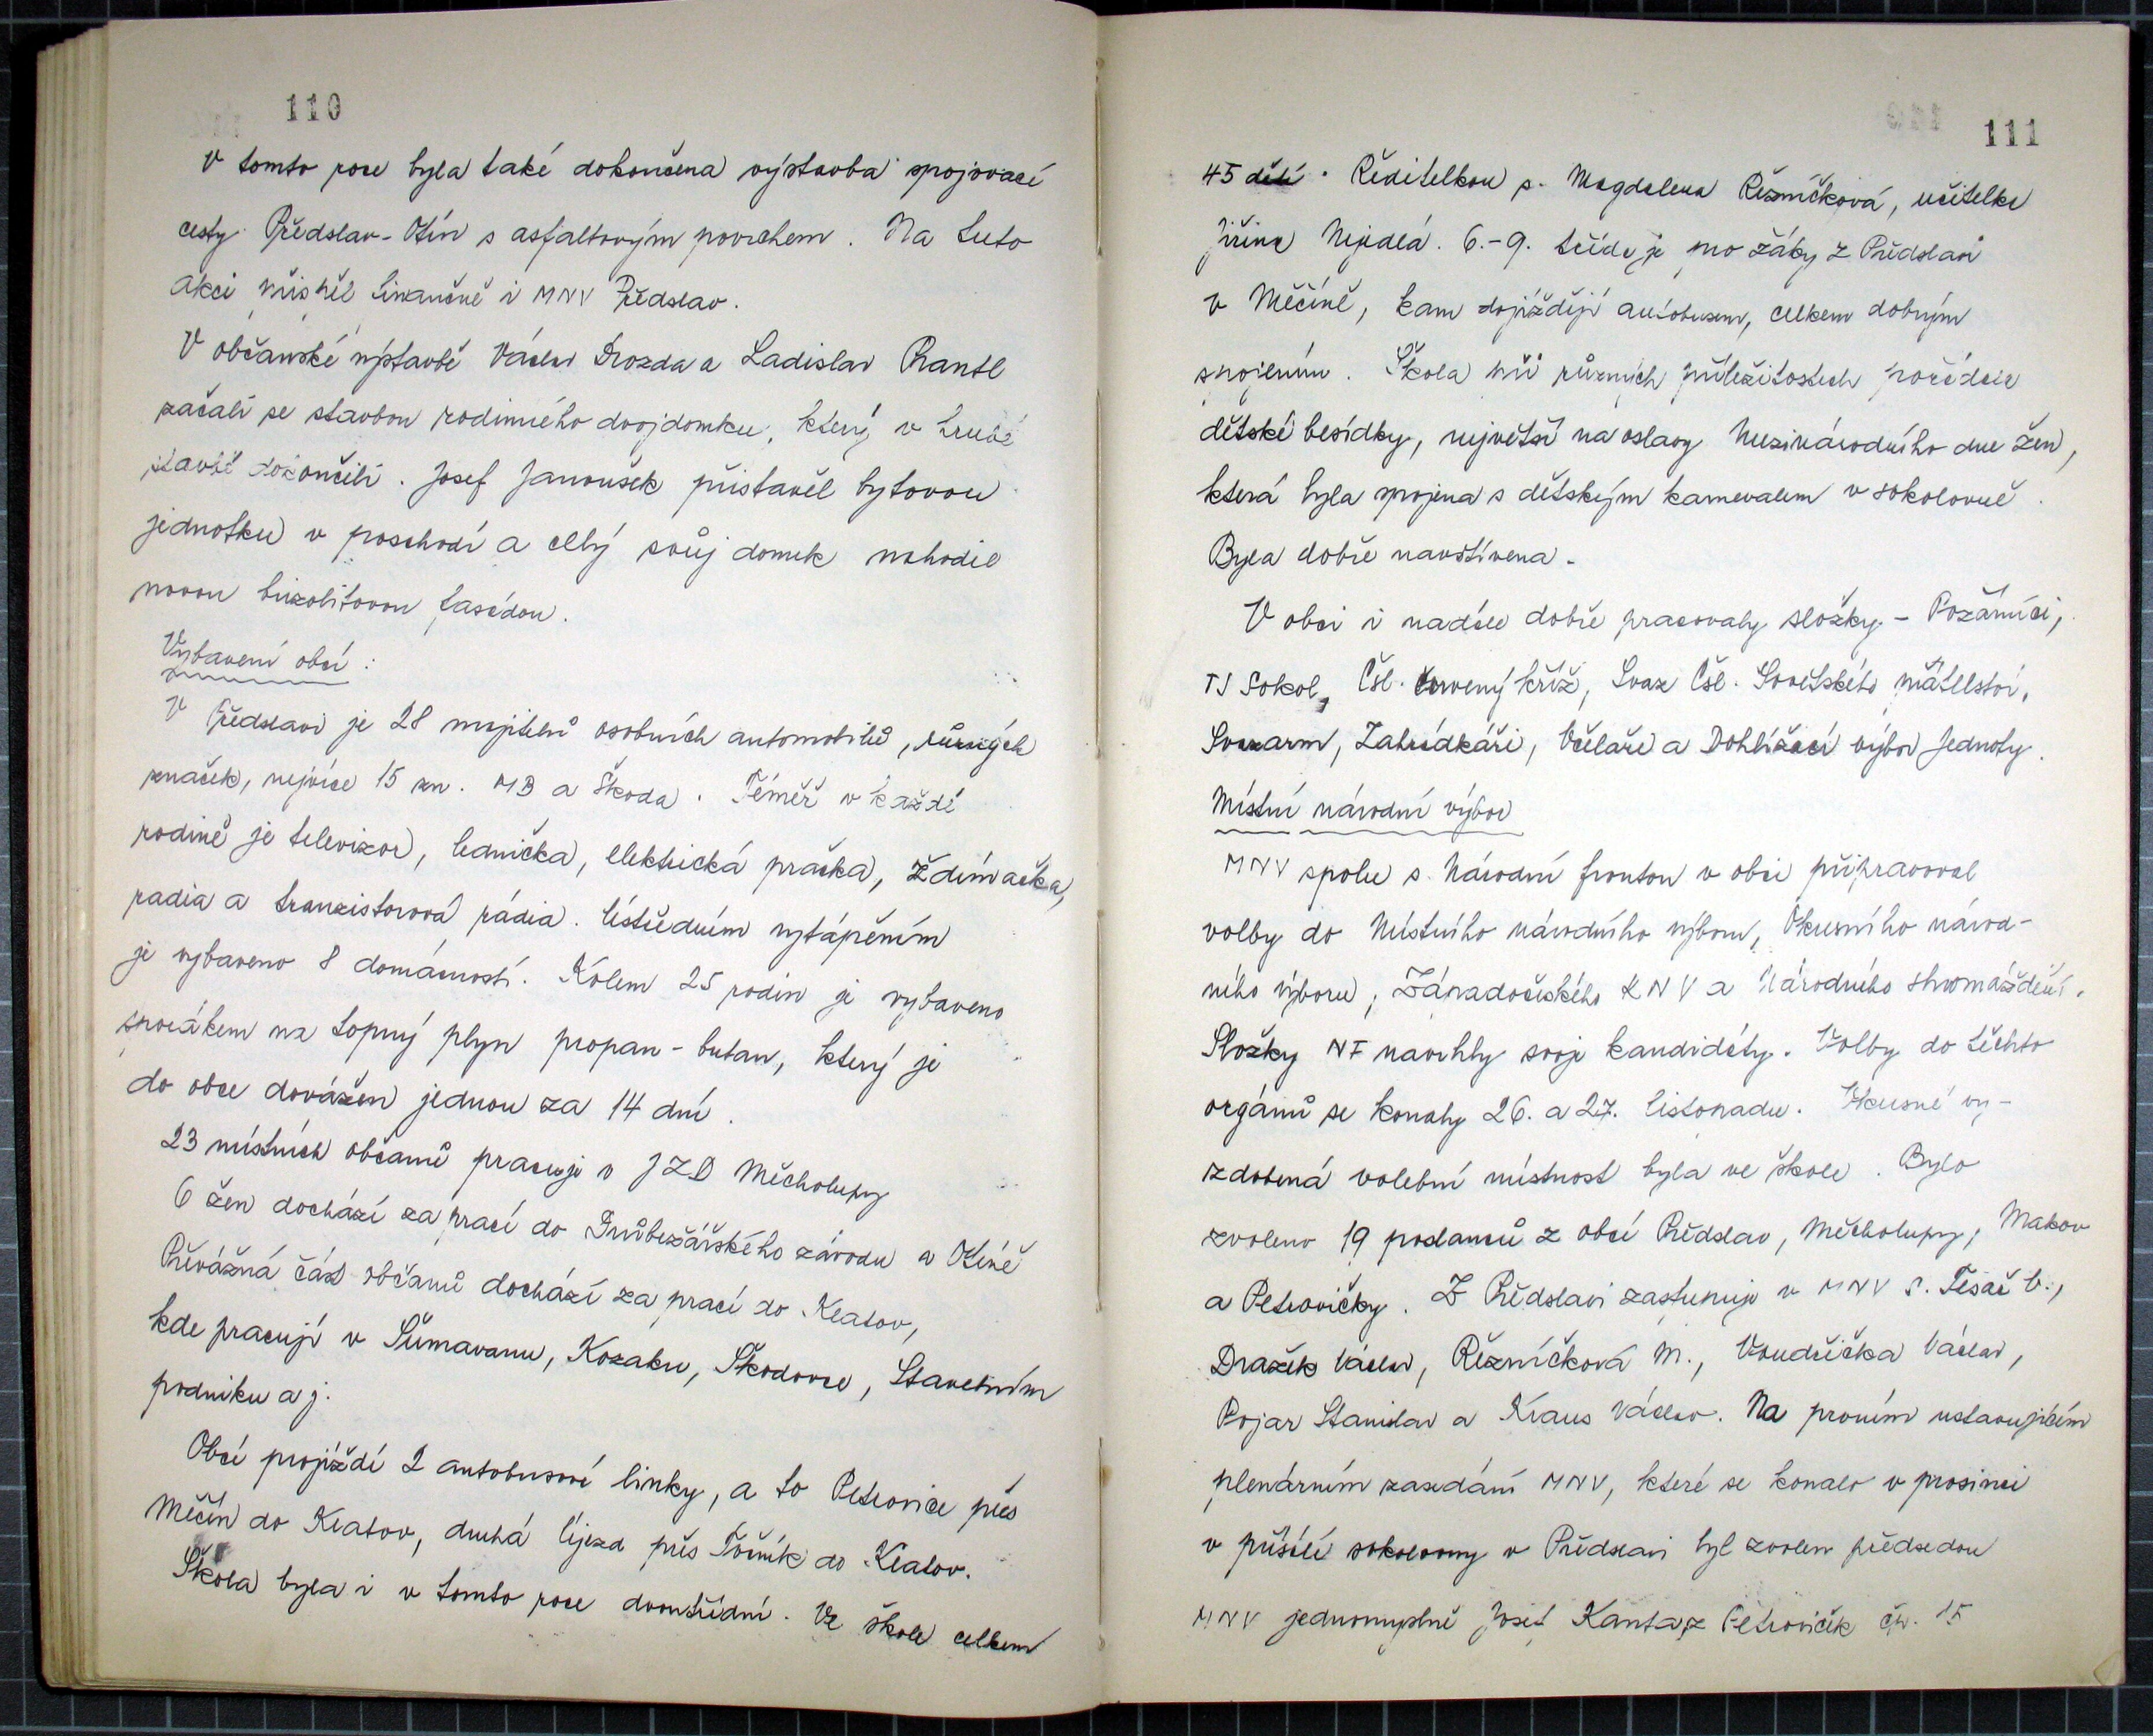 110
V tomto roce byla také dokončena výstavba spojovací
cesty Předslav-Otín s asfaltovým povrchem. Na tuto
akci přispěl finančně i MNV Předslav.
V občanské výstavbě Václav Drozda a Ladislav Rantl
začali se stavbou rodinného dvojdomku, který v hrubé
stavbě dokončili. Josef Janoušek přistavěl bytovou
jednotku v poschodí a celý svůj domek nahodil
novou brizolitovou fasádou.
Vybavení obcí:
V Předslavi je 28 majitelů osobních automobilů, různých
značek, nejvíce 15 zn. MB a Škoda. Téměř v každé
rodině je televizor, lednička, elektrická pračka, ždímačka,
radia a tranzistorová rádia. Ústředním vytápěním
je vybaveno 8 domácností. Kolem 25 rodin je vybaveno
sporákem na topný plyn propan-butan, který je
do obce dovážen jednou za 14 dní.
23 místních občanů pracuje v JZD Měcholupy
6 žen dochází za prací do Drůbežářského závodu v Otíně
Převážná část občanů dochází za prací do Klatov,
kde pracují v Šumavanu, Kozaku, Škodovce, Stavebním
podniku a j.
Obcí projíždí 2 autobusové linky, a to Petrovice přes
Měčín do Klatov, druhá Újezd přes Točník do Klatov.
Škola byla i v tomto roce dvoutřídní. Ve škole celkem
111
45 dětí. Ředitelkou p. Magdalena Řezníčková, učitelka
Jiřina Nejedlá. 6.-9. třída je pro žáky z Předslavi
v Měčíně, kam dojíždějí autobusem, celkem dobrým
spojením. Škola při různých příležitostech pořádala
dětské besídky, největší na oslavy Mezinárodního dne žen,
která byla spojena s dětským karnevalem v sokolovně.
Byla dobře navštívena.
V obci i nadále dobře pracovaly složky - Požárníci,
TJ Sokol, Čsl. červený kříž, Svaz Čsl. Sovětského přátelství,
Svazarm, Zahrádkáři, Včelaři a Dohlížecí výbor Jednoty.
Místní národní výbor
MNV spolu s Národní frontou v obci připravoval
volby do Místního národního výboru, Okresního národ-
ního výboru, Západočeského KNV a Národního shromáždění.
Složky NF navrhly svoje kandidáty. Volby do těchto
orgánů se konaly 26. a 27. listopadu. Vkusně vy-
zdobená volební místnost byla ve škole. Bylo
zvoleno 19 poslanců z obcí Předslav, Měcholupy, Makov
a Petrovičky. Z Předslavi zastupuje v MNV s. Tesař V.,
Dražek Václav, Řezníčková M., Voudřička Václav,
Pojar Stanislav a Kraus Václav. Na prvním ustavujícím
plenárním zasedání MNV, které se konalo v prosinci
v přísálí sokolovny v Předslavi byl zvolen předsedou
MNV jednomyslně Josef Kanta, z Petroviček čp. 15